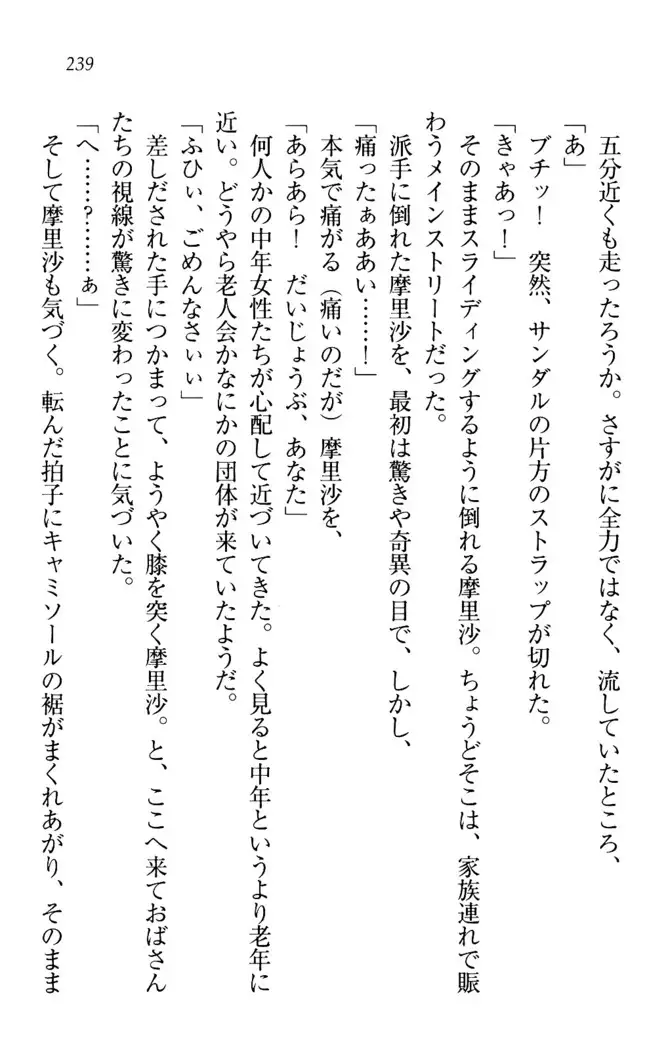 239
五分近くも走ったろうか。さすがに全力ではなく、流していたところ、
「あ」
ブチッ！　突然、サンダルの片方のストラップが切れた。
「きゃあっ！」
そのままスライディングするように倒れる摩里沙。ちょうどそこは、家族連れで賑
わうメインストリートだった。
派手に倒れた摩里沙を、最初は驚きや奇異の目で、しかし、
「痛ったぁああい……！」
本気で痛がる（痛いのだが）摩里沙を、
「あらあら！　だいじょうぶ、あなた」
何人かの中年女性たちが心配して近づいてきた。よく見ると中年というより老年に
近い。どうやら老人会かなにかの団体が来ていたようだ。
「ふひぃ、ごめんなさぃぃ」
差しだされた手につかまって、ようやく膝を突く摩里沙。と、ここへ来ておばさん
たちの視線が驚きに変わったことに気づいた。
「へ……？……ぁ」
そして摩里沙も気づく。転んだ拍子にキャミソールの裾がまくれあがり、そのまま